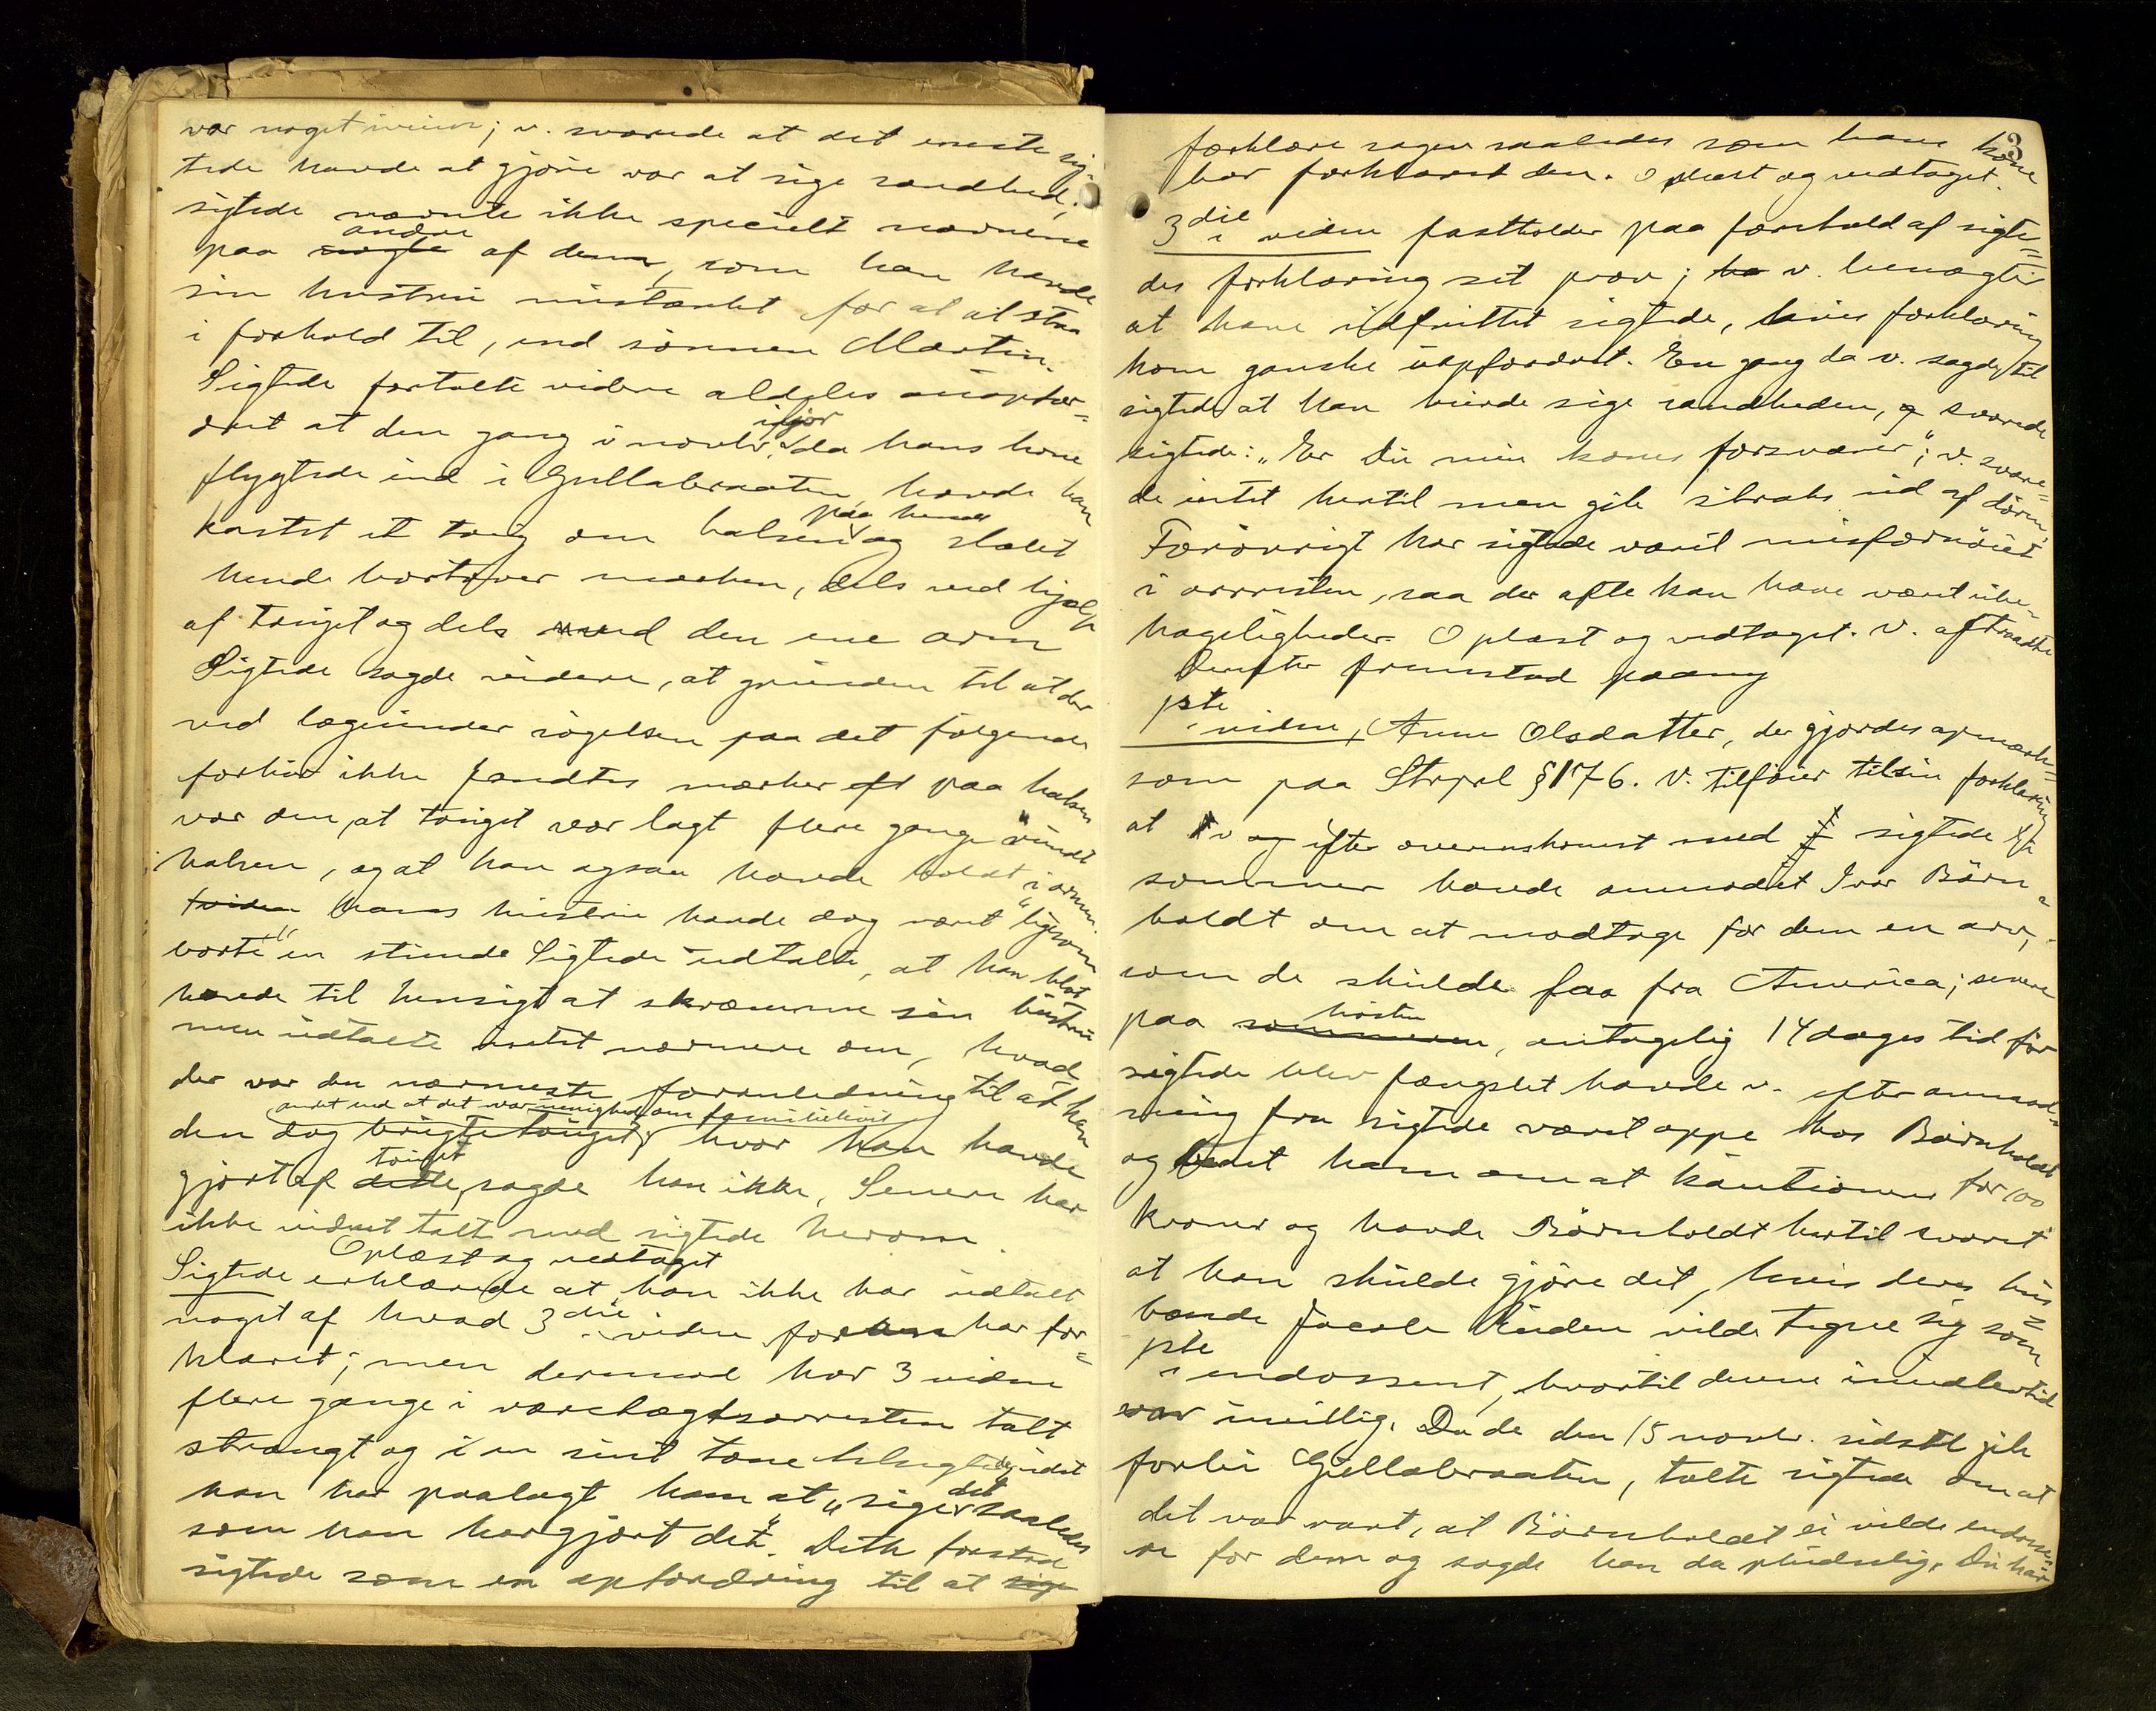 var noget ; v. svarede at det eneste sig-
tede havde at gjöre var at sige sandhed;
sigtede nævnte ikke specielt navnene
paa nogle andre af dem, som han havde
sin hustru mistænkt for at at staa
i forhold til, end sönnen Martin.
Sigtede fortalte videre aldeles uopfor-
dret at den gang i novbr. ifjor da hans kone
flygtede ind i Gullabraaten, havde han
kastet et toug om halsen paa hende og slæbt
hende bortover marken, dels ved hjælp
af touget og dels med den ene arm
Sigtede sagde videre, at grunden til at der
ved lægeundersögelsen paa det fölgende
forhör ikke fandtes mærker paa halsen
var den, at touget var lagt flere gange "rundt
halsen, og at han ogsaa havde holdt i armen.
hans hustru havde dog været "ligesom
borte" en stund. Sigtede udtalte, at han blot
havde til hensigt at skræmme sin hustru
men udtalte intet nærmere om, hvad
der var den nærmeste foranledning til at han
andet end at det var uenighed om familielivet
den dag brugte touget; hvor han havde
gjort af dette touget, sagde han ikke. Senere har
ikke vidnet talt med sigtede herom.
Oplæst og vedtaget
Sigtede erklærede at han ikke har udtalt
noget af hvad 3die vidne har for-
klaret; men dermod har 3 vidne
flere gange i varetægtsarresten talt
strengt og i en sint tone til sigtede, idet
han har paalagt ham at "sige det saaledes
som han har gjort det". Dette forstod
sigtede som en opfordring til at sige
3
forklare sagen saaledes som hans kone
har forklaret den. Oplæst og vedtaget.
3die vidne fastholder paa forehold af sigte-
des forklaring sit prov; ha v. benægter
at have udfrittet sigtede, hvis forklaring
kom ganske uopfordret. En gang da v. sagde til
sigtede at han burde sige sandheden, svarede
sigtede: "Er Du min kones forsvarer"; v. svare-
de intet hertil men gik straks ud af dören.
Forövrigt har sigtede været misfornöiet
i arresten, saa der ofte kan have været ube-
hageligheder. Oplæst og vedtaget. V. aftraadte
Derefter fremstod paany
1ste vidne, Anne Olsdatter, der gjordes opmærk-
som paa Strprl §176. V. tilföier til sin forklaring
at v og efter overenskomst med sigtede
sommer havde anmodet Ivar Börn-
holdt om at modtage for dem en arv,
som de skulde faa fra America; senere
paa sommeren hösten, antagelig 14 dages tid för
sigtede blev fængslet havde v. efter anmod-
ning fra sigtede været oppe hos Börnholdt
og bedt ham om at kautionere for 100
kroner og havde Börnholdt hertil svaret
at han skulde gjöre det, hvis deres hus-
bonde Jacob Linden vilde tegne sig som
1ste endossent, hvortil denne imidlertid
var uvillig. Da de den 15 novbr. sidstl gik
forbi Gullabraaten, talte sigtede om at
det var rart, at Börnholdt ei vilde endosse-
re for dem og sagde han da pludselig: Du har